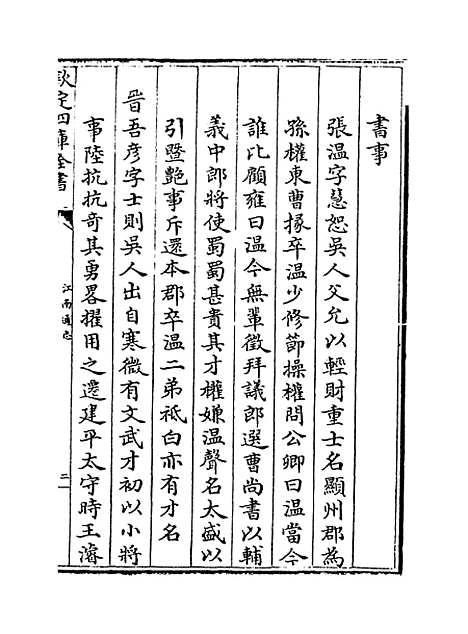 書事
張温字惠恕吳人父允以輕財重士名顯州郡為
孫權東曹掾卒温少修節操權問公卿曰温當今
誰比顧雍曰温今無輩徵拜議郎選曹尚書以輔
義中郎將使蜀蜀甚貴其才權嫌温聲名太盛以
引曁艶事斥還本郡卒温二弟祗白亦有才名
晉吾彥字士則吳人出自寒微有文武才初以小將
事陸抗抗奇其勇畧擢用之遷建平太守時王濬
欽定四庫全書
江南通志